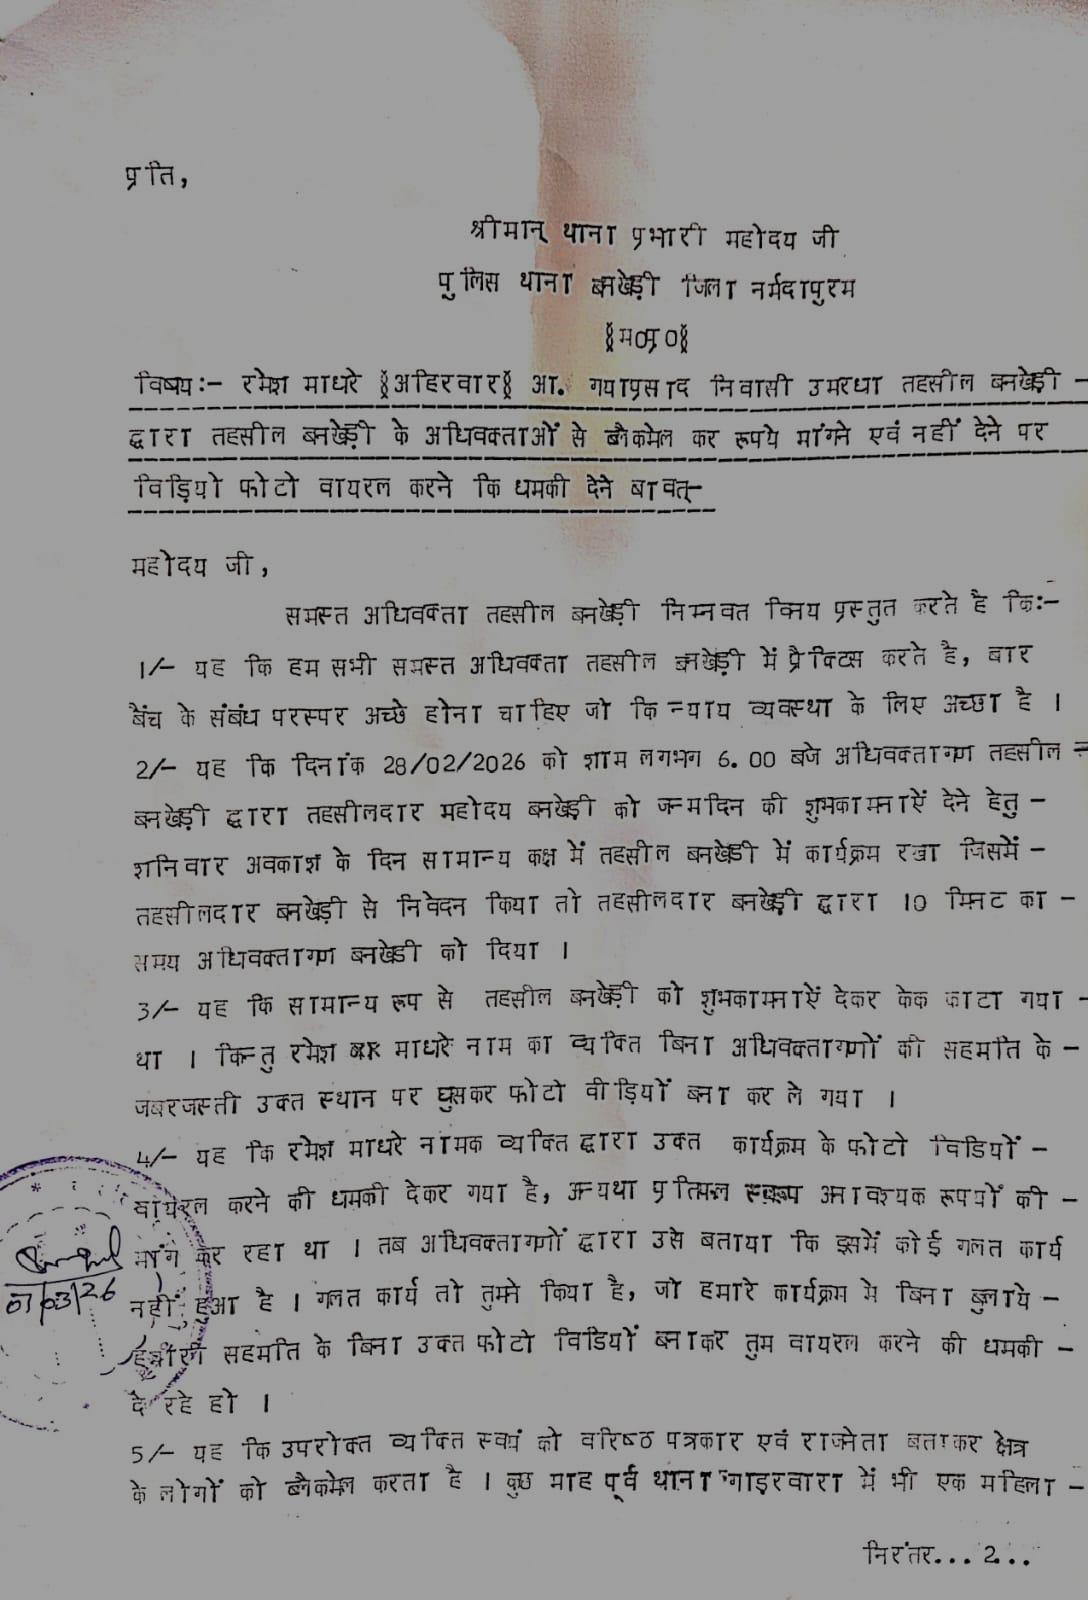 प्रति,
श्रीमान् थाना प्रभारी महोदय जी
पुलिस थाना बनखेड़ी जिला नर्मदापुरम
§म0प्र0§
विषय:- रमेश माधरे §अहिरवार§ आ. गयाप्रसाद निवासी उमरधा तहसील बनखेड़ी -
द्वारा तहसील बनखेड़ी के अधिवक्ताओं से ब्लैकमेल कर रूपये मांगने एवं नहीं देने पर
विड़ियो फोटो वायरल करने कि धमकी देने बावत्-
महोदय जी,
समस्त अधिवक्ता तहसील बनखेड़ी निम्नवत विनय प्रस्तुत करते है कि:-
1/- यह कि हम सभी समस्त अधिवक्ता तहसील बनखेड़ी में प्रैक्टिस करते है, बार
बैंच के संबंध परस्पर अच्छे होना चाहिए जो कि न्याय व्यवस्था के लिए अच्छा है ।
2/- यह कि दिनांक 28/02/2026 को शाम लगभग 6.00 बजे अधिवक्तागण तहसील -
बनखेड़ी द्वारा तहसीलदार महोदय बनखेड़ी को जन्मदिन की शुभकामनाऐं देने हेतु -
शनिवार अवकाश के दिन सामान्य कक्ष में तहसील बनखेडी में कार्यक्रम रखा जिसमें -
तहसीलदार बनखेड़ी से निवेदन किया तो तहसीलदार बनखेड़ी द्वारा 10 मिनट का -
समय अधिवक्तागण बनखेडी को दिया ।
3/- यह कि सामान्य रूप से तहसील बनखेड़ी को शुभकामनाऐं देकर केक काटा गया -
था । किन्तु रमेश माधरे नाम का व्यक्ति बिना अधिवक्तागणों की सहमति के -
जबरजस्ती उक्त स्थान पर घुसकर फोटो वीड़ियों बना कर ले गया ।
4/- यह कि रमेश माधरे नामक व्यक्ति द्वारा उक्त कार्यक्रम के फोटो विडियों -
वायरल करने की धमकी देकर गया है, अन्यथा प्रतिफल स्वरूप अनावश्यक रूपयों की -
मांग कर रहा था । तब अधिवक्तागणों द्वारा उसे बताया कि इसमें कोई गलत कार्य
नहीं हुआ है । गलत कार्य तो तुमने किया है, जो हमारे कार्यक्रम मे बिना बुलाये -
हमारी सहमति के बिना उक्त फोटो विडियों बनाकर तुम वायरल करने की धमकी -
दे रहे हो ।
07/03/26
5/- यह कि उपरोक्त व्यक्ति स्वयं को वरिष्ठ पत्रकार एवं राजनेता बताकर क्षेत्र
के लोगों को ब्लैकमेल करता है । कुछ माह पूर्व थाना गाडरवारा में भी एक महिला -
निरंतर...2...